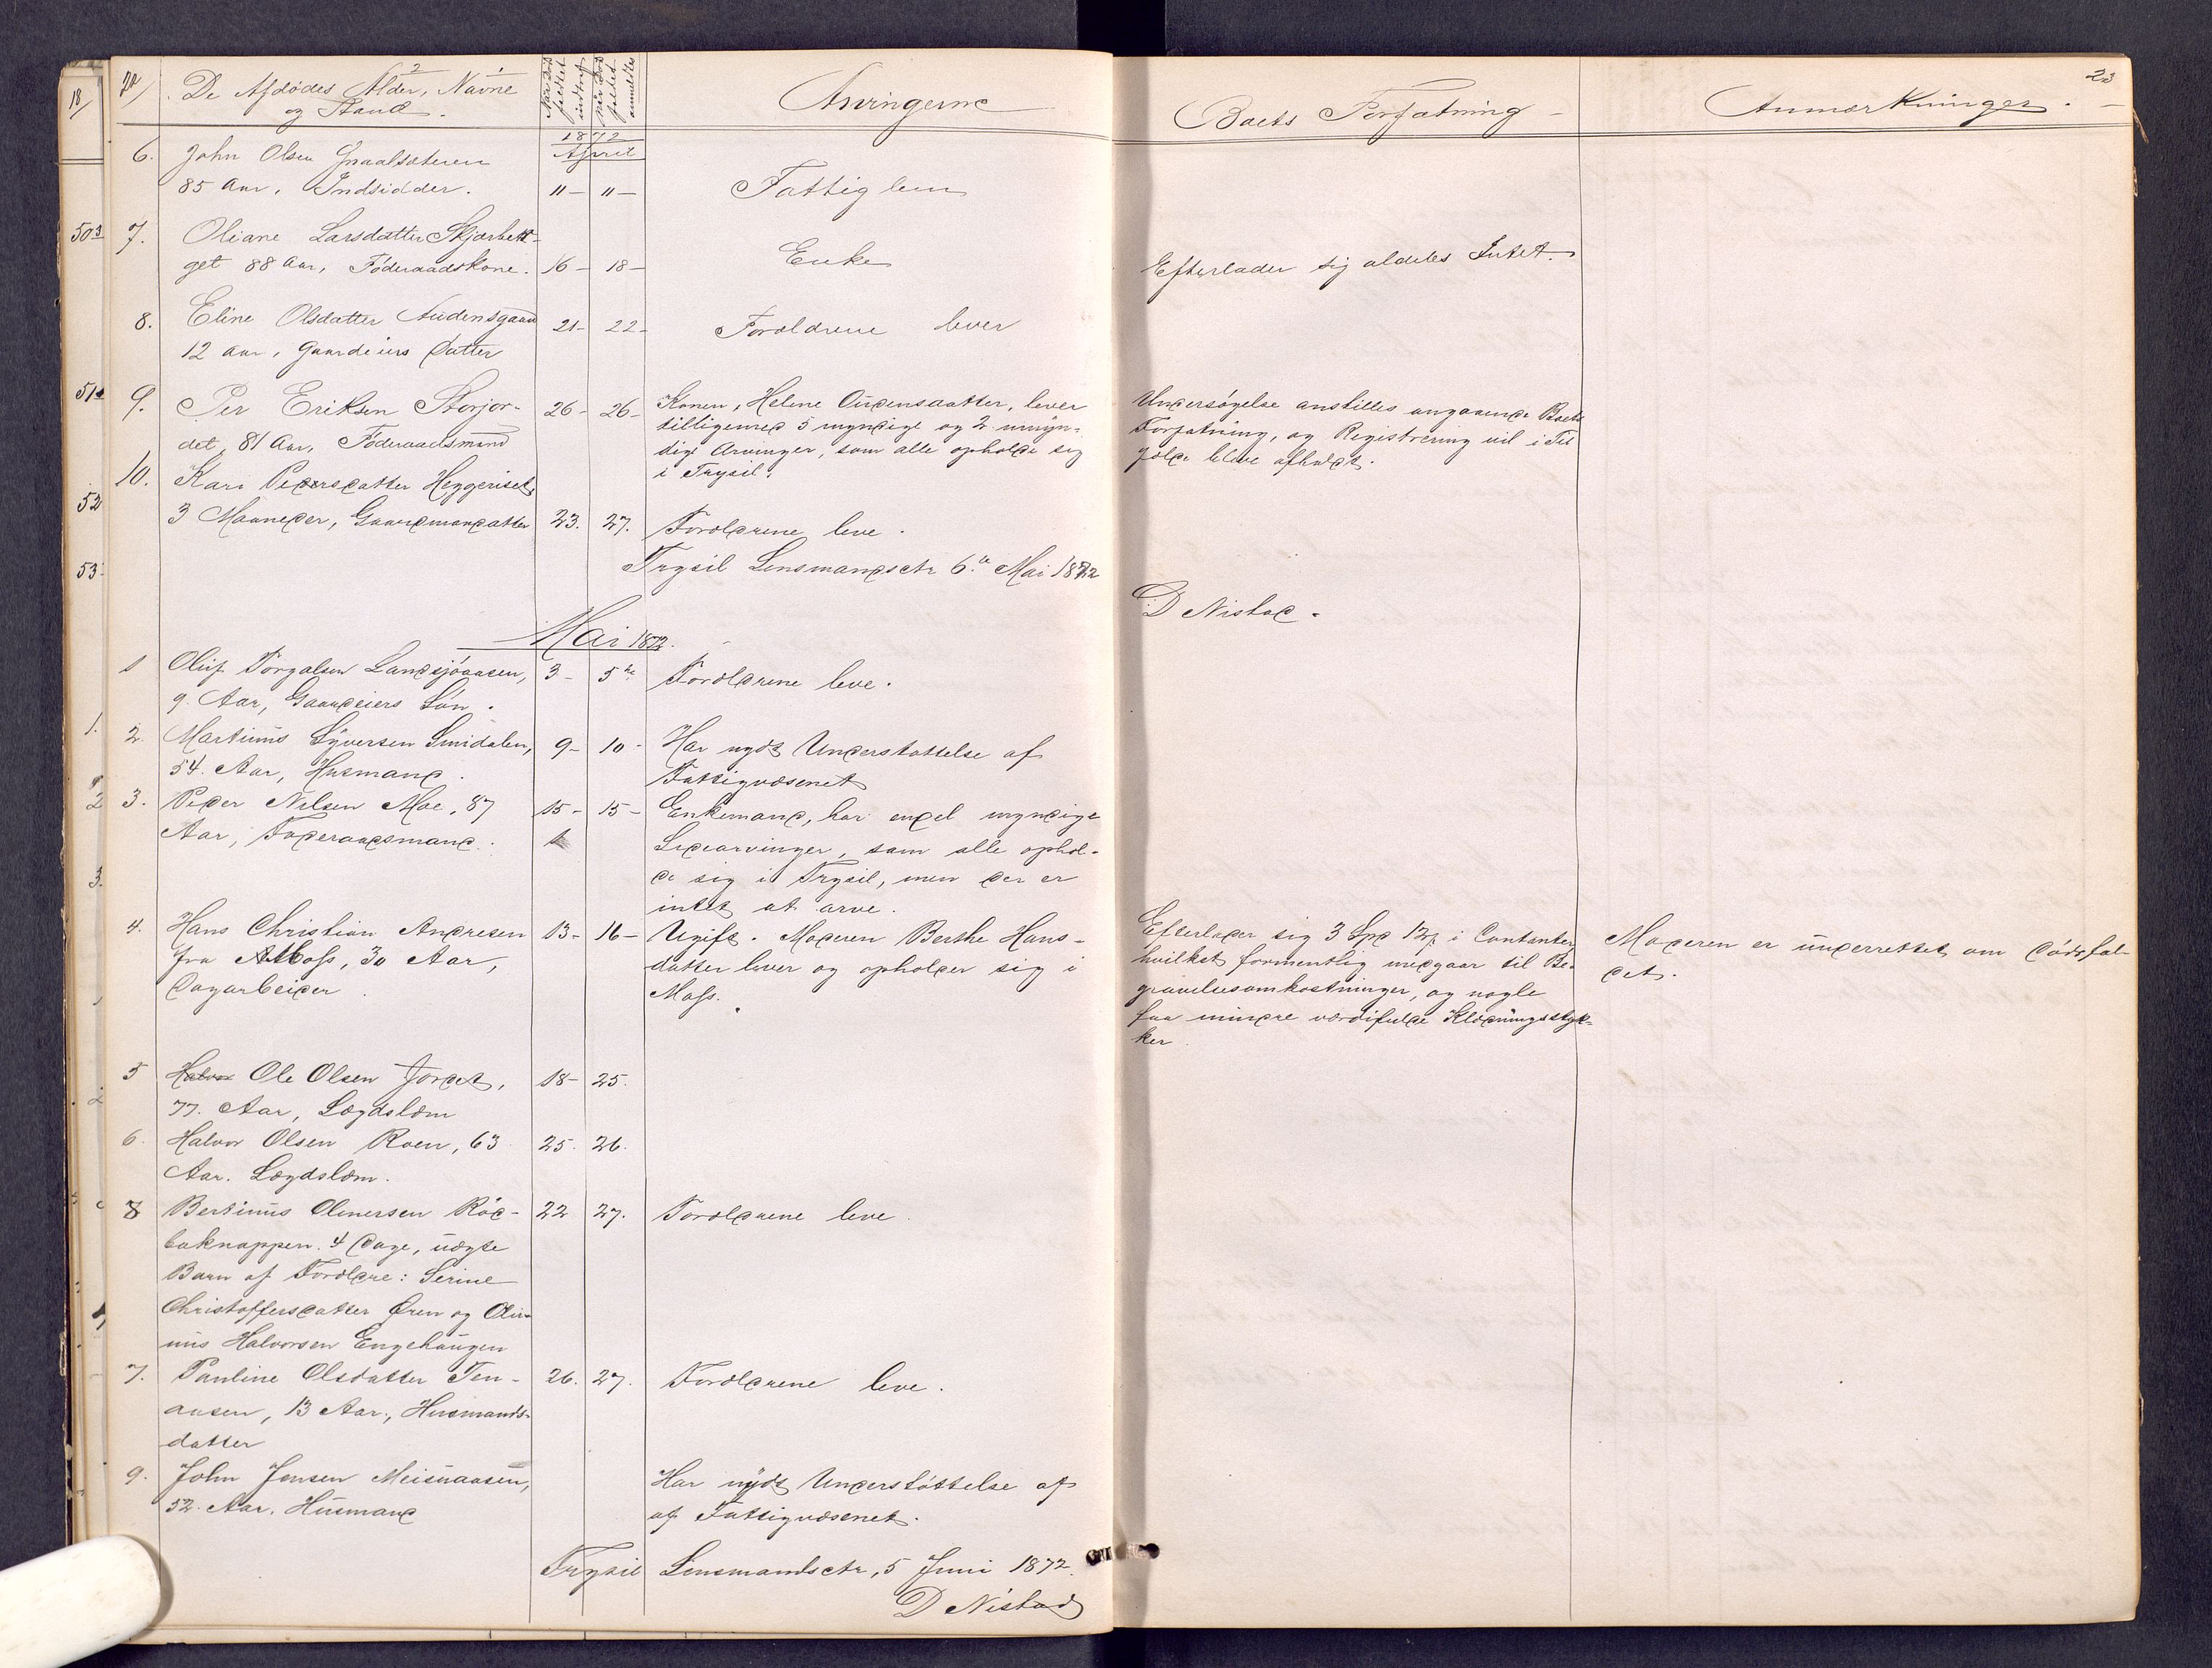 22
De Afdødes Alder, Navne
og Stand.
Naar Døds
faldet
indtraf
Naar Døds
faldet
anmeldtes
Arvingerne
Boets Forfatning
Anmærkninger.
23
1872
April
6. John Olsen
85 Aar, Indsidder. 11 – 11 – Fattiglem
7. Oliane Larsdatter Skjærbek-
get 88 Aar, Føderaadskone. 16 – 18 – Enke
Efterlader sig aldeles Intet.
8. Eline Olsdatter Audensgaard 21 – 22 – Forældrene lever
12 Aar, Gaardeiers Datter
9. Per Eriksen Storjor- 26 – 26 – Konen, Helene Oudensdatter, lever
det, 81 Aar, Føderaadsmand
tilligemed 5 myndige og 2 umyn-
dige Arvinger, som alle opholde sig
i Trysil.
Undersøgelse anstilles angaaende Boets
Forfatning, og Registrering vil i Til
fælde blive afholdt.
10. Kari Pedersdatter Heggeriset,
3 Maaneder, Gaardmandatter 23. 27. Forældrene leve.
Trysil Lensmandsctr 6te Mai 1872
D Nistad.
Mai 1872.
1 Oluf Torgalsen Landsjøaasen, 3 – 5te Forældrene leve.
9 Aar, Gaardeiers Søn.
2. Martinus Syversen Smidalen, 9 – 10 – Har nydt Understøttelse af
54. Aar, Husmand. Fattigvæsenet
3. Peder Nilsen Moe, 87 15 – 15 – Enkemand, har endel myndige
Aar, Føderaadsmand.
Livsarvinger, som alle ophol-
de sig i Trysil, men der er
intet at arve.
4. Hans Christian Andresen 13 – 16 – Ugift. Moderen Berthe Hans-
fra Moss, 30 Aar, datter lever og opholder sig i
Dagarbeider. Moss.
Efterlader sig 3 Spd 12 i Contanter,
hvilket formentlig medgaar til Be-
gravelsesomkostninger, og nogle
faa mindre værdifulde Klædningsstyk-
ker.
Moderen er underrettet om Dødsfal-
det.
5 Halvor Ole Olsen Jordet, 18 – 25.
77. Aar, Lægdslem
6. Halvor Olsen Roen, 63 25. 26.
Aar. Lægdslem.
8 Bertinus Olinersen Rød- 22 27. Forældrene leve.
baknappen. 4 Dage, uægte
Barn af Forældre: Serine
Christoffersdatter Øren og Oli-
nus Halvorsen Engehaugen
7. Pauline Olsdatter Ten- 26. 27. Forældrene leve.
aasen, 13 Aar, Husmands-
datter
9. John Jensen Meisnaasen, Har nydt Understøttelse af
52 Aar. Husmand af Fattigvæsenet.
Trysil Lensmandsctr, 5 Juni 1872.
D Nistad